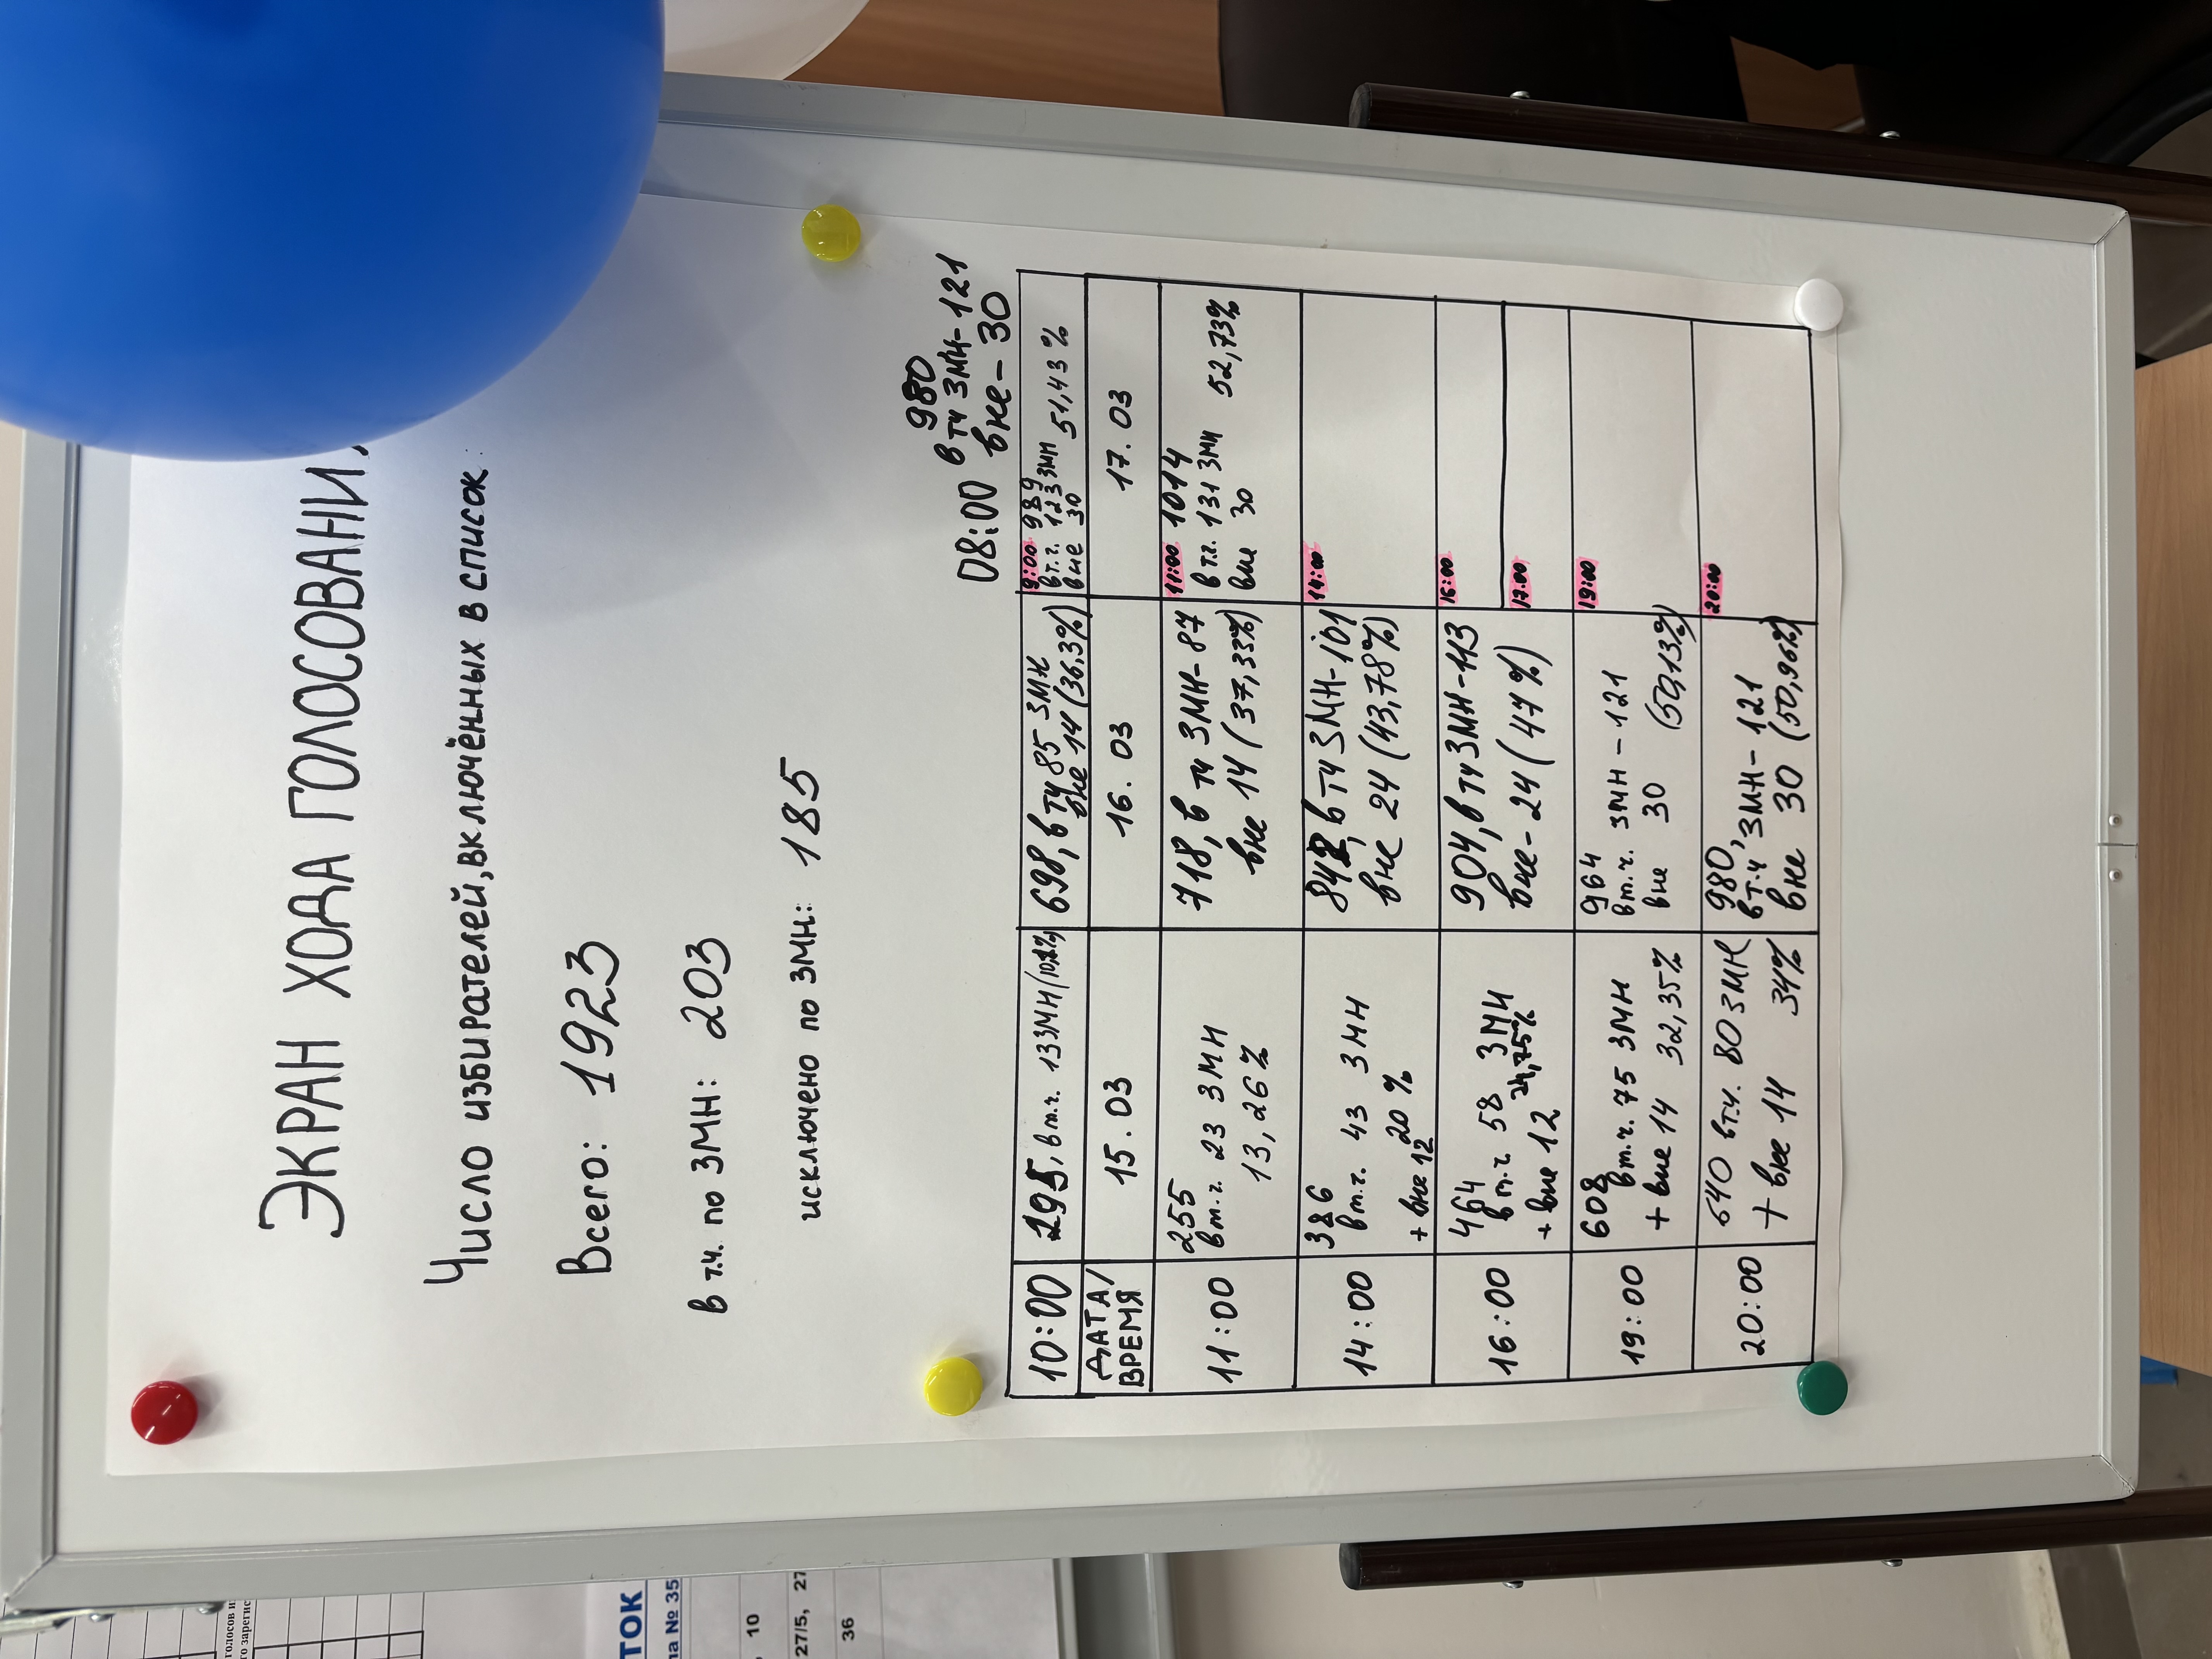 ЭКРАН ХОДА ГОЛОСОВАНИ
Число избирателей, включённых в список:
Всего: 1923
в т.ч. по ЗМН: 203
исключено по ЗМН: 185
08:00 980
в тч ЗМН-121
вне - 30
10:00
195, в т.ч. 13 ЗМН
698, в тч 85 ЗМН
вне 14 (36,3%)
9:00 989
в т.ч. 123 ЗМН
вне 30 51,43%
ДАТА/
ВРЕМЯ
15.03
16.03
17.03
11:00
255
в т.ч. 23 ЗМН
13,26%
718, в тч ЗМН-87
вне 14 (37,33%)
11:00 1014
в т.ч. 131 ЗМН
вне 30 52,73%
14:00
386
в т.ч. 43 ЗМН
+ вне 12 20%
842, в тч ЗМН-101
вне 24 (43,78%)
14:00
16:00
464
в т.ч. 58 ЗМН
+ вне 12 24,75%
904, в тч ЗМН-113
вне - 24 (47%)
16:00
17:00
19:00
608
в т.ч. 75 ЗМН
+ вне 14 32,35%
964
в т.ч. ЗМН-121
вне 30 (50,13%)
19:00
20:00
640 в т.ч. 80 ЗМН
+ вне 14 34%
980,
в т.ч ЗМН-121
вне 30 (50,96%)
20:00
ТОК
па № 35
10
27/5, 27
36
голосов и
о зарегис